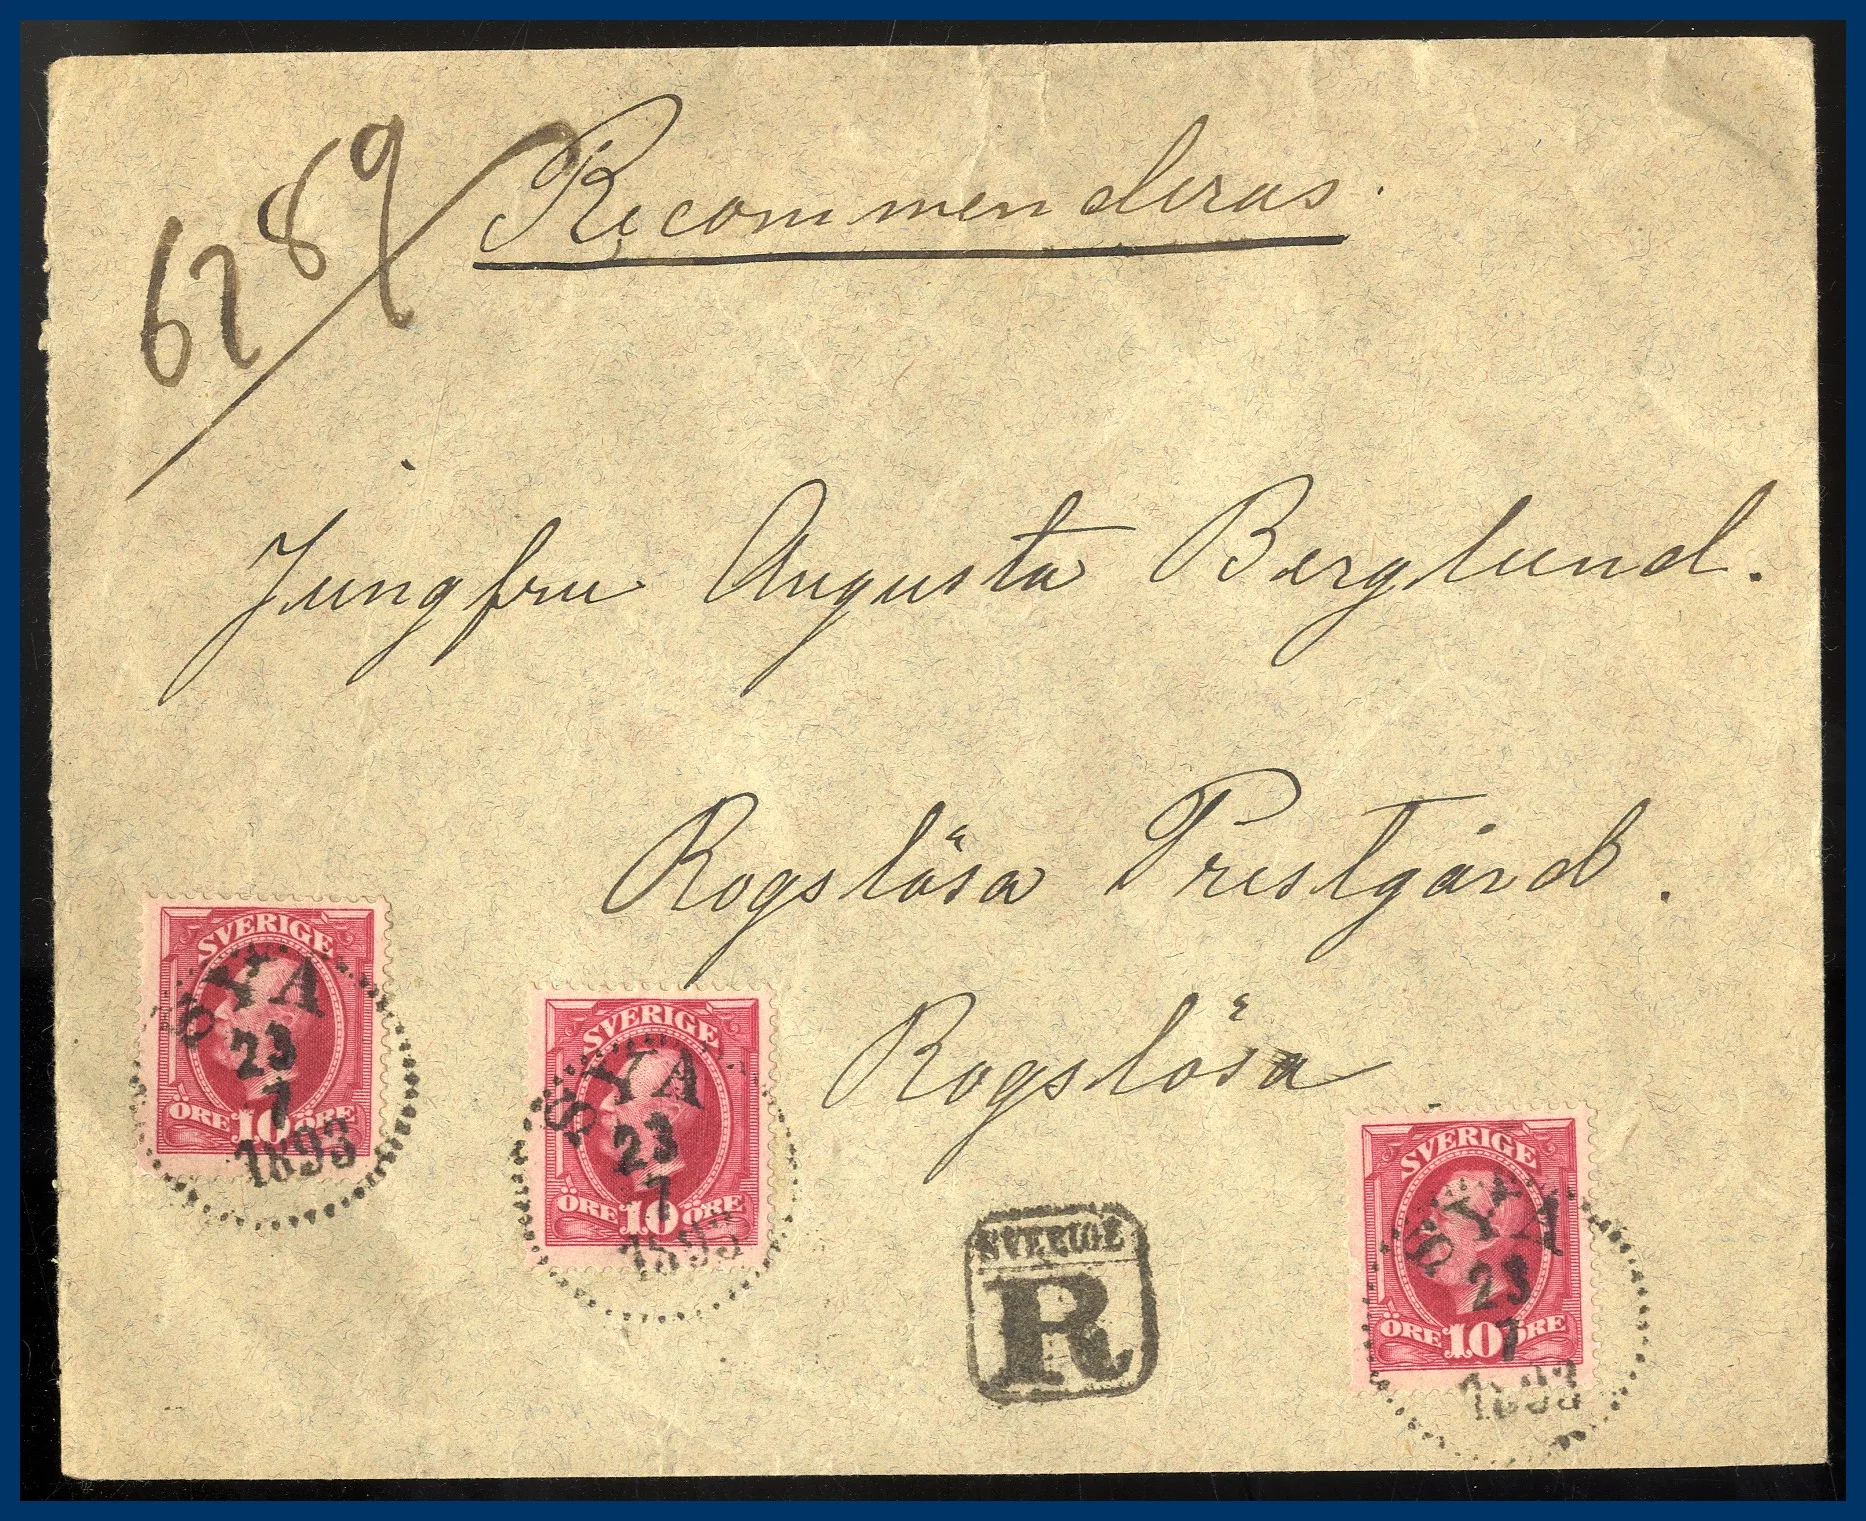 6289
Recommenderas.
Jungfru Augusta Berglund.
Rogslösa Prestgård.
Rogslösa
SVERIGE
SYA
23
7
1893
ÖRE 10 ÖRE
SVERIGE
SYA
23
7
1893
ÖRE 10 ÖRE
SVERIGE
R
SVERIGE
SYA
23
7
1893
ÖRE 10 ÖRE